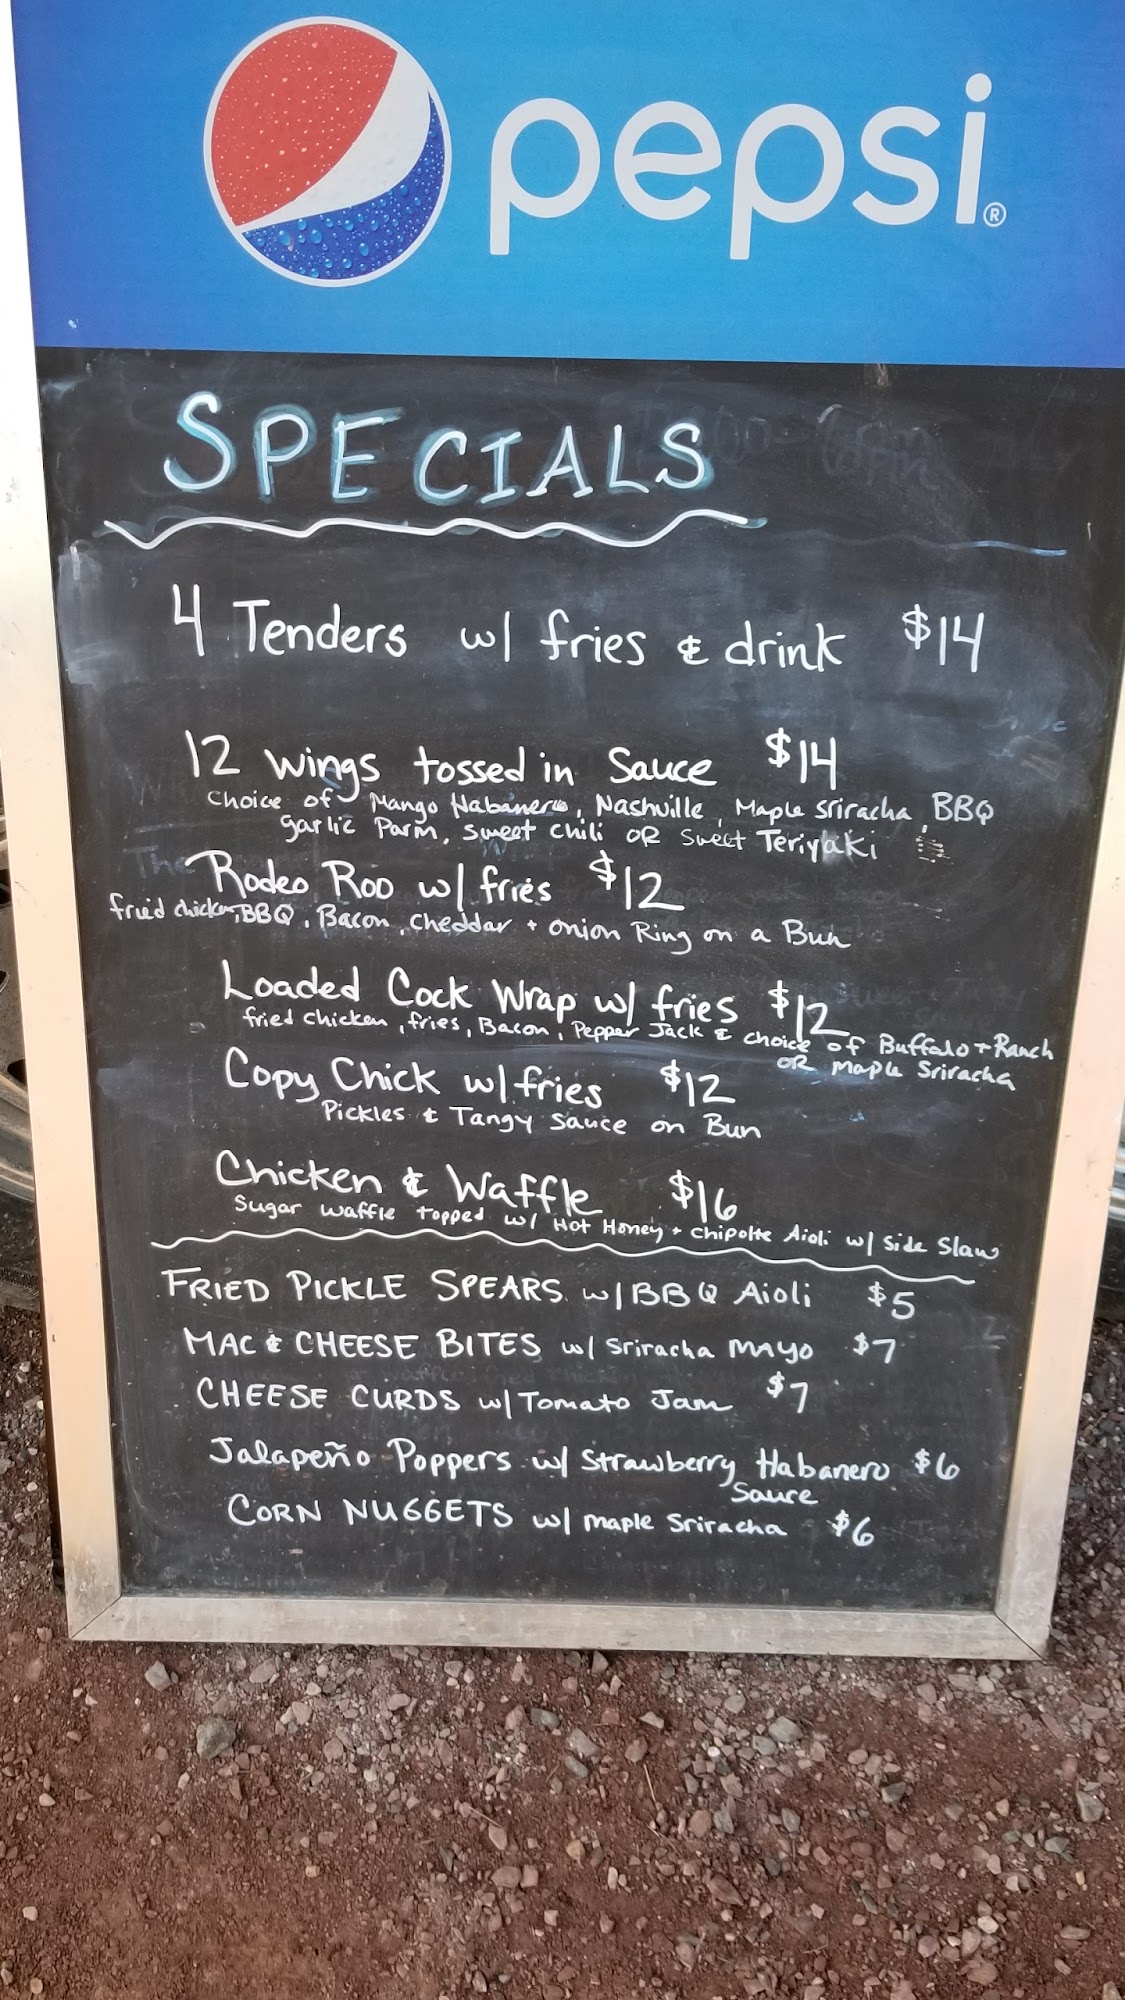 pepsi®
SPECIALS
4 Tenders w/ fries & drink $14
12 wings tossed in Sauce $14
Choice of Mango Habanero, Nashville, Maple Sriracha, BBQ
garlic Parm, sweet chili OR Sweet Teriyaki
Rodeo Roo w/ fries $12
fried chicken, BBQ, Bacon, Cheddar + onion Ring on a Bun
Loaded Cock Wrap w/ fries $12
fried chicken, fries, Bacon, Pepper Jack & choice of Buffalo + Ranch
OR maple Sriracha
Copy Chick w/ fries $12
Pickles & Tangy Sauce on Bun
Chicken & Waffle $16
Sugar waffle topped w/ Hot Honey + Chipolte Aioli w/ Side Slaw
FRIED PICKLE SPEARS w/ BBQ Aioli $5
MAC & CHEESE BITES w/ Sriracha MAYO $7
CHEESE CURDS w/ Tomato Jam $7
Jalapeño Poppers w/ Strawberry Habanero $6
Sauce
CORN NUGGETS w/ maple Sriracha $6